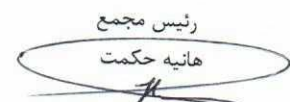 رئیس مجمع
هانیه حکمت